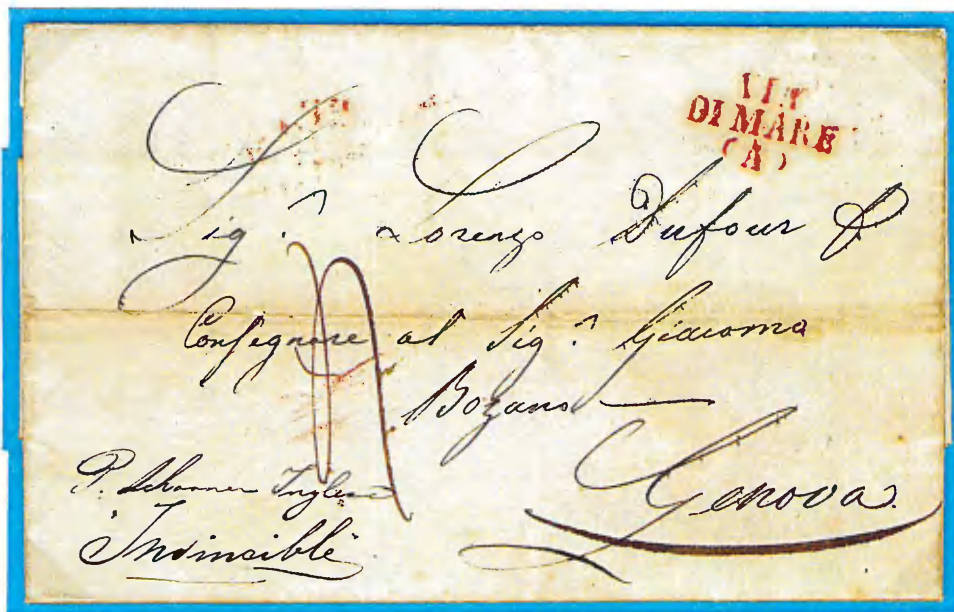 VIA
DI MARE
(A)
Sig.r Lorenzo Dufour P
Consegnare al Sig.r Giacomo
Bozano
Genova
P. Schooner Inglese
Invincible